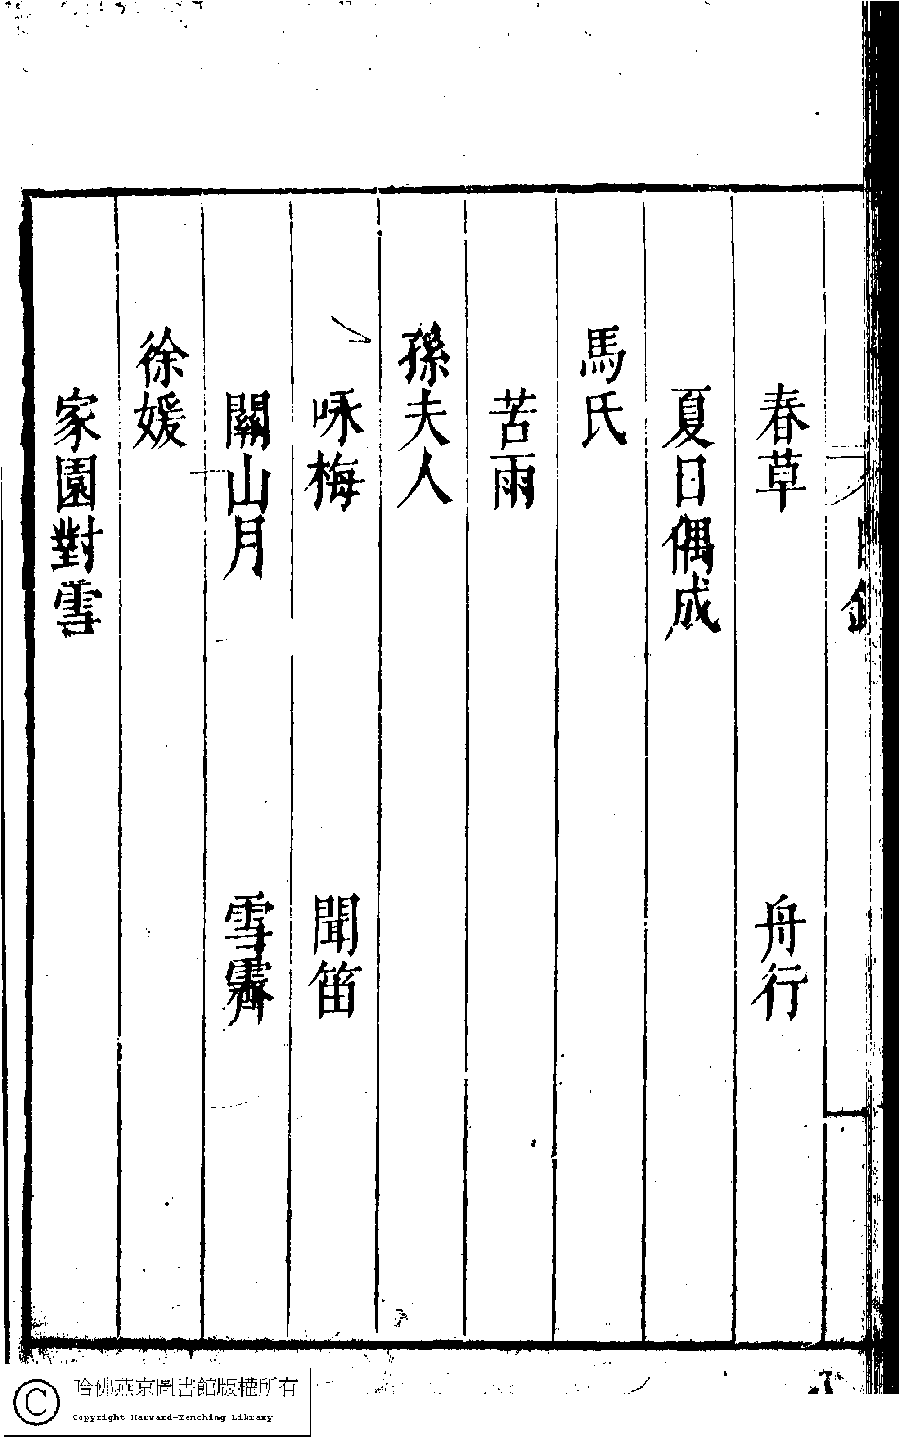 目錄
春草 舟行
夏日偶成
馬氏
苦雨
孫夫人
咏梅 聞笛
關山月 雪霽
徐媛
家園對雪
哈佛燕京圖書館版權所有
Copyright Harvard-Yenching Library